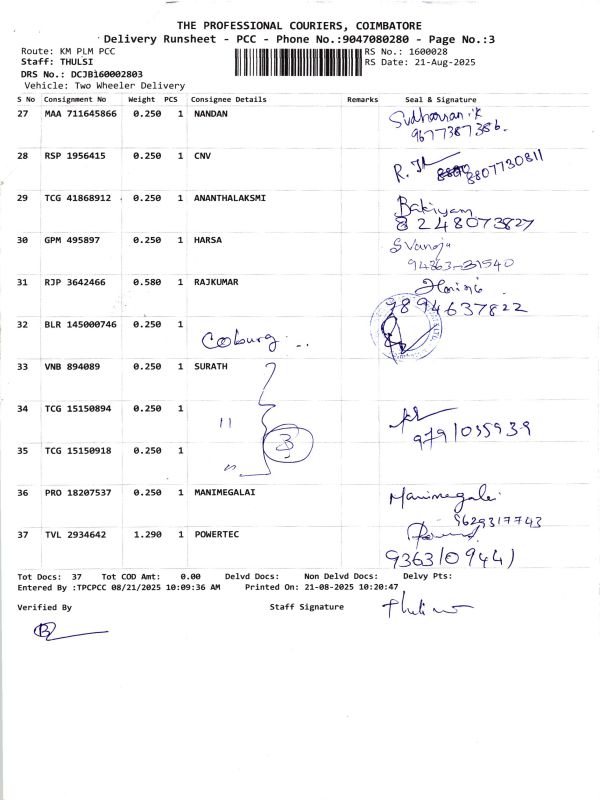 THE PROFESSIONAL COURIERS, COIMBATORE
Delivery Runsheet - PCC - Phone No.:9047080280 - Page No.:3
Route: KM PLM PCC RS No.: 1600028
Staff: THULSI RS Date: 21-Aug-2025
DRS No.: DCJB160002803
Vehicle: Two Wheeler Delivery
S No Consignment No Weight PCS Consignee Details Remarks Seal & Signature
27 MAA 711645866 0.250 1 NANDAN
9677387386.
28 RSP 1956415 0.250 1 CNV
8807730811
29 TCG 41868912 0.250 1 ANANTHALAKSMI Bakiyam
8248073827
30 GPM 495897 0.250 1 HARSA S Vanoja
94863-31540
31 RJP 3642466 0.580 1 RAJKUMAR
9894637822
32 BLR 145000746 0.250 1
Coburg
33 VNB 894089 0.250 1 SURATH
34 TCG 15150894 0.250 1 "
9791035939
3
35 TCG 15150918 0.250 1
"
36 PRO 18207537 0.250 1 MANIMEGALAI Manimegalai
9629317743
37 TVL 2934642 1.290 1 POWERTEC
9363109441
Tot Docs: 37 Tot COD Amt: 0.00 Delvd Docs: Non Delvd Docs: Delvy Pts:
Entered By :TPCPCC 08/21/2025 10:09:36 AM Printed On: 21-08-2025 10:20:47
Verified By Staff Signature